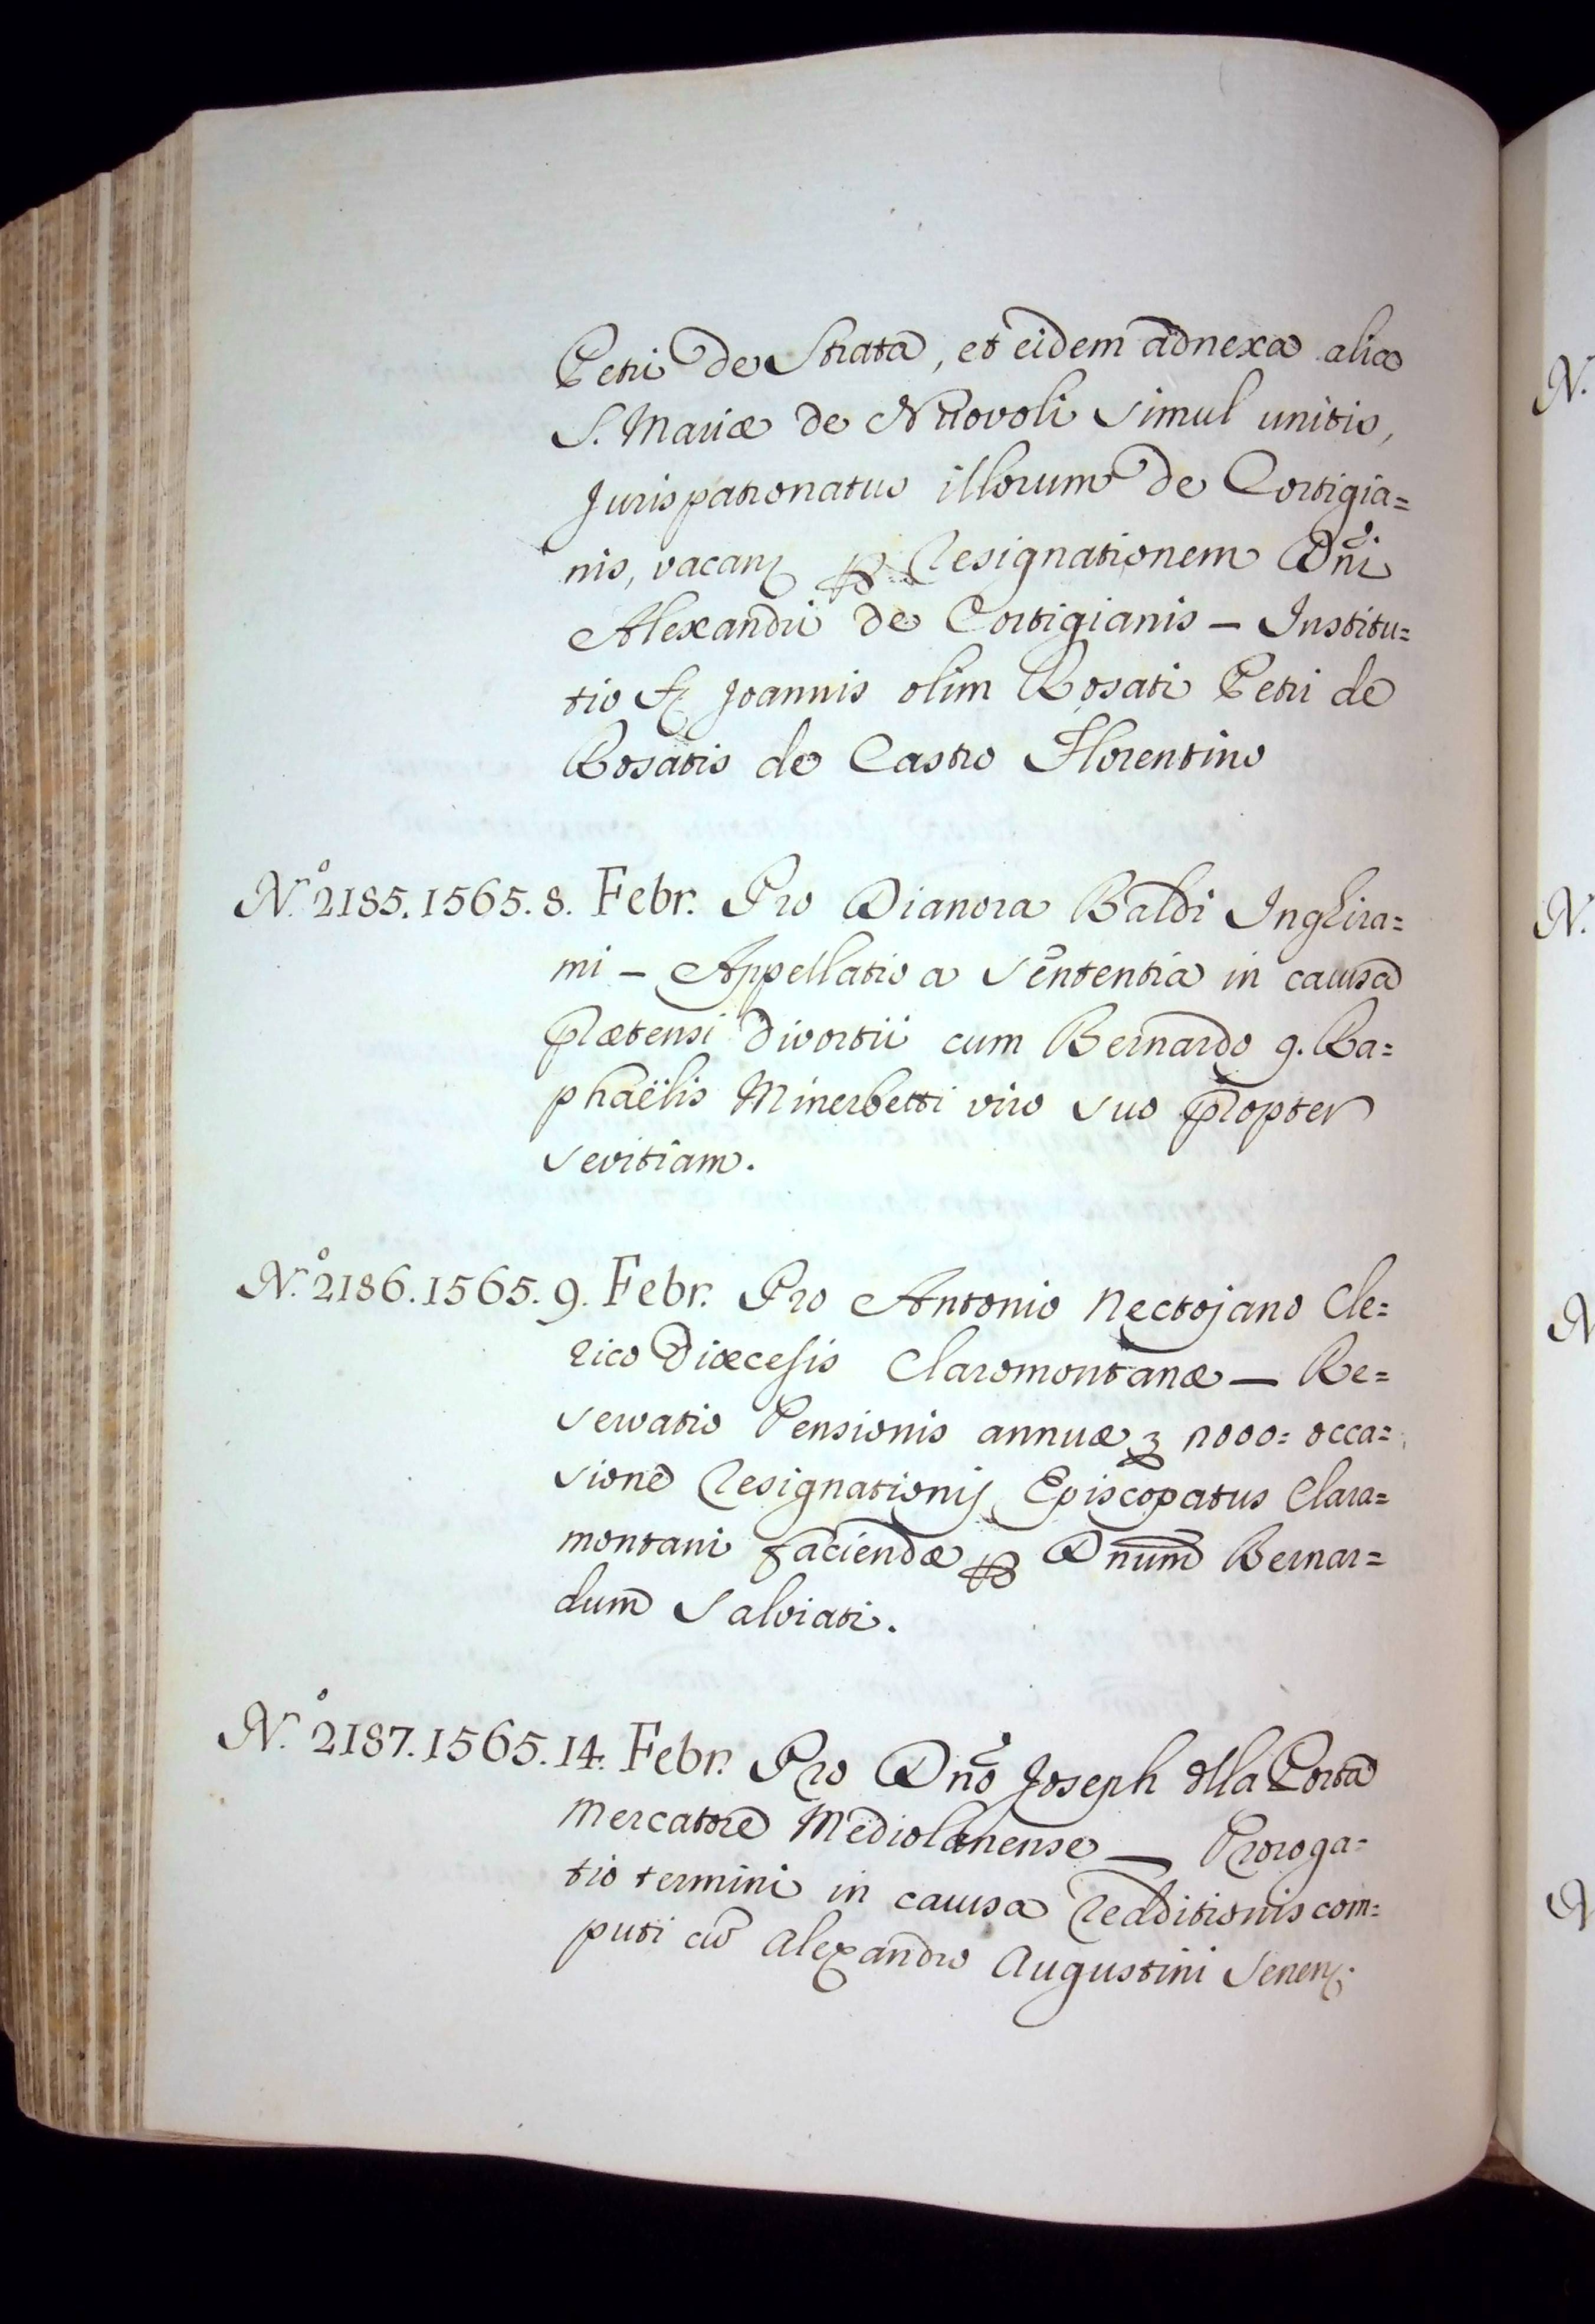 Petri de Strata, et eidem adnexa alia
S. Mariæ de Nuovoli simul unitis,
Jurispatronatus illorum de Cortigia=
nis, vacan resignationem Dñi
Alexandri de Cortigianis — Institu=
tio Joannis olim Rosati Petri de
Rosatis de Castro Florentino
N.º 2185. 1565. 8. Febr. Pro Dianora Baldi Inghira=
mi — Appellatio a sententia in causa
prætensi Divortii cum Bernardo q. Ra=
phaëlis Minerbetti viro suo propter
sevitiam.
N.º 2186. 1565. 9. Febr. Pro Antonio Nectojano Cle=
rico Diœcesis Claromontanæ — Re=
servatio Pensionis annuæ occa=
sione resignationis Episcopatus Clara=
montani faciendæ Dnum Bernar=
dum Salviati.
N.º 2187. 1565. 14. Febr. Pro Dño Joseph dlla Porta
Mercatore Mediolanense — Proroga=
tio termini in causa redditionis com=
puti cū Alexandro Augustini Senen
N.
N.
N
N